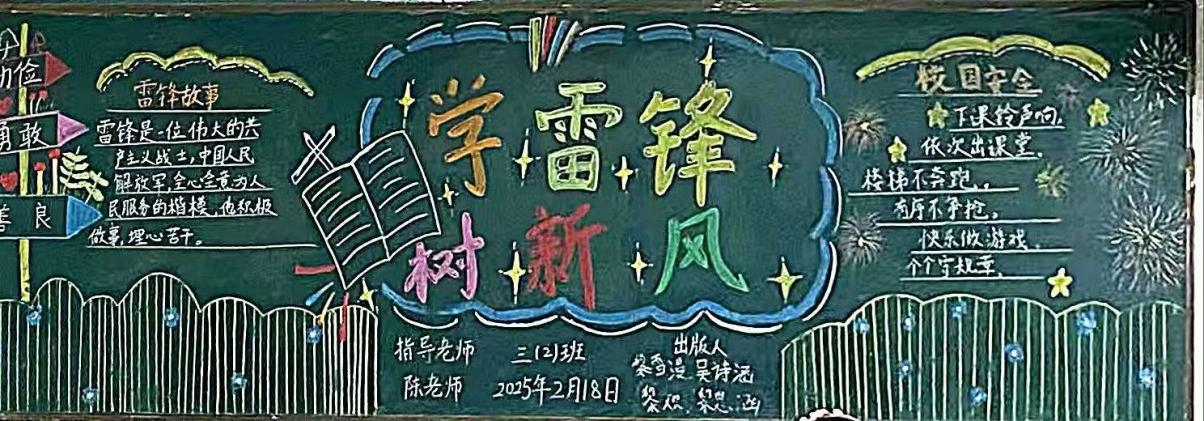 俭
勇敢
善良
雷锋故事
雷锋是一位伟大的共
产主义战士,中国人民
解放军全心全意为人
民服务的楷模,他积极
做事,埋心苦干。
学雷锋
树新风
指导老师
陈老师
三(2)班
2025年2月18日
出版人
黎雪漫 吴诗涵
校园安全
下课铃声响,
依次出课堂,
楼梯不奔跑,
有序不争抢,
快乐做游戏,
个个守规章,